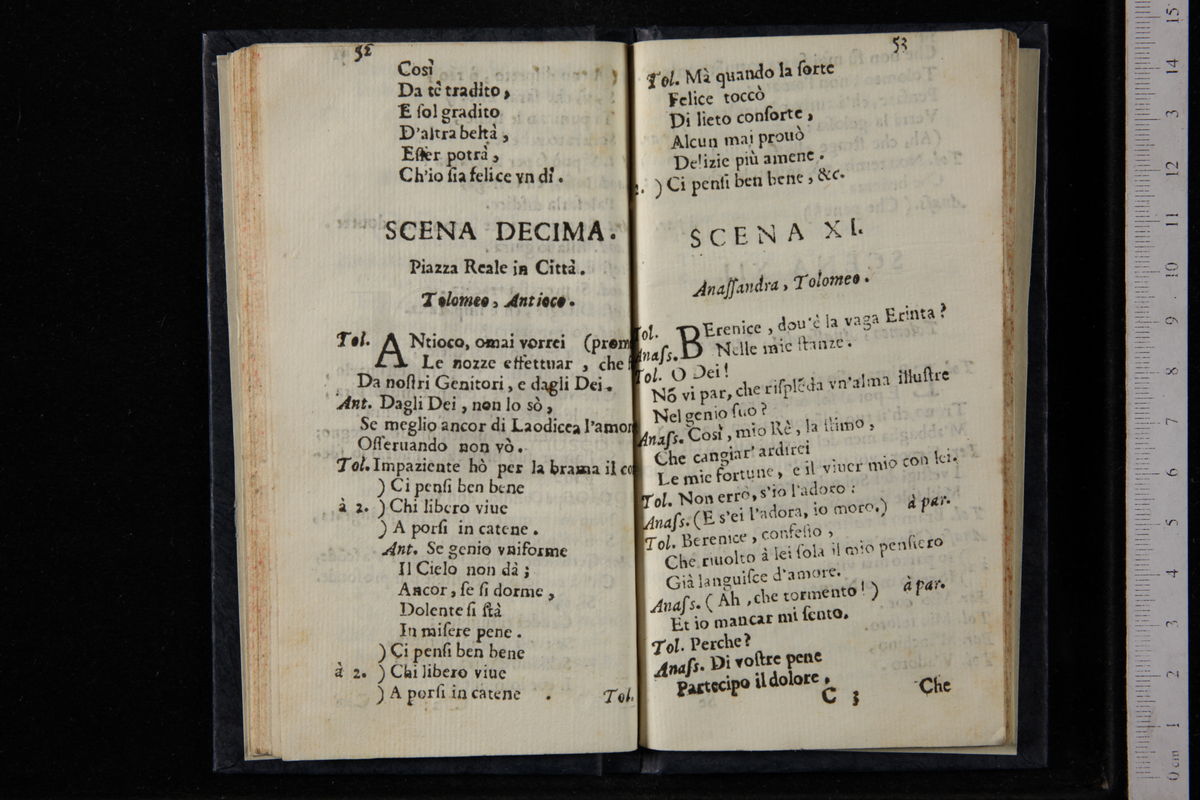 52
Così
Da te tradito,
E ſol gradito
D'altra beltà,
Eſſer potrà,
Ch'io ſia felice vn dì.
SCENA DECIMA.
Piazza Reale in Città.
Tolomeo, Antioco.
Tol. ANtioco, omai vorrei (prom
Le nozze effettuar, che
Da noſtri Genitori, e dagli Dei.
Ant. Dagli Dei, non lo sò,
Se meglio ancor di Laodicea l'amor
Oſſeruando non vò.
Tol. Impaziente hò per la brama il co
) Ci penſi ben bene
à 2. ) Chi libero viue
) A porſi in catene.
Ant. Se genio vniforme
Il Cielo non dà;
Ancor, ſe ſi dorme,
Dolente ſi ſtà
In miſere pene.
) Ci penſi ben bene
à 2. ) Chi libero viue
) A porſi in catene .
Tol.
53
Tol. Mà quando la ſorte
Felice toccò
Di lieto conſorte,
Alcun mai prouò
Delizie più amene.
2. ) Ci penſi ben bene, &c.
SCENA XI.
Anaſſandra, Tolomeo.
Tol. BErenice, dou'è la vaga Erinta?
Anaſs. Nelle mie ſtanze.
Tol. O Dei!
Nō vi par, che riſplēda vn'alma illuſtre
Nel genio ſuo?
Anaſs. Così, mio Rè, la ſtimo,
Che cangiar' ardirei
Le mie fortune, e il viuer mio con lei.
Tol. Non errò, s'io l'adoro:
Anaſs. (E s'ei l'adora, io moro.) à par.
Tol. Berenice, confeſſo,
Che riuolto à lei ſola il mio penſiero
Già languiſce d'amore.
Anaſs. (Ah, che tormento!) à par.
Et io mancar mi ſento.
Tol. Perche?
Anaſs. Di voſtre pene
Partecipo il dolore,
C 3
Che
15
14
13
12
11
10
9
8
7
6
5
4
3
2
1
0 cm